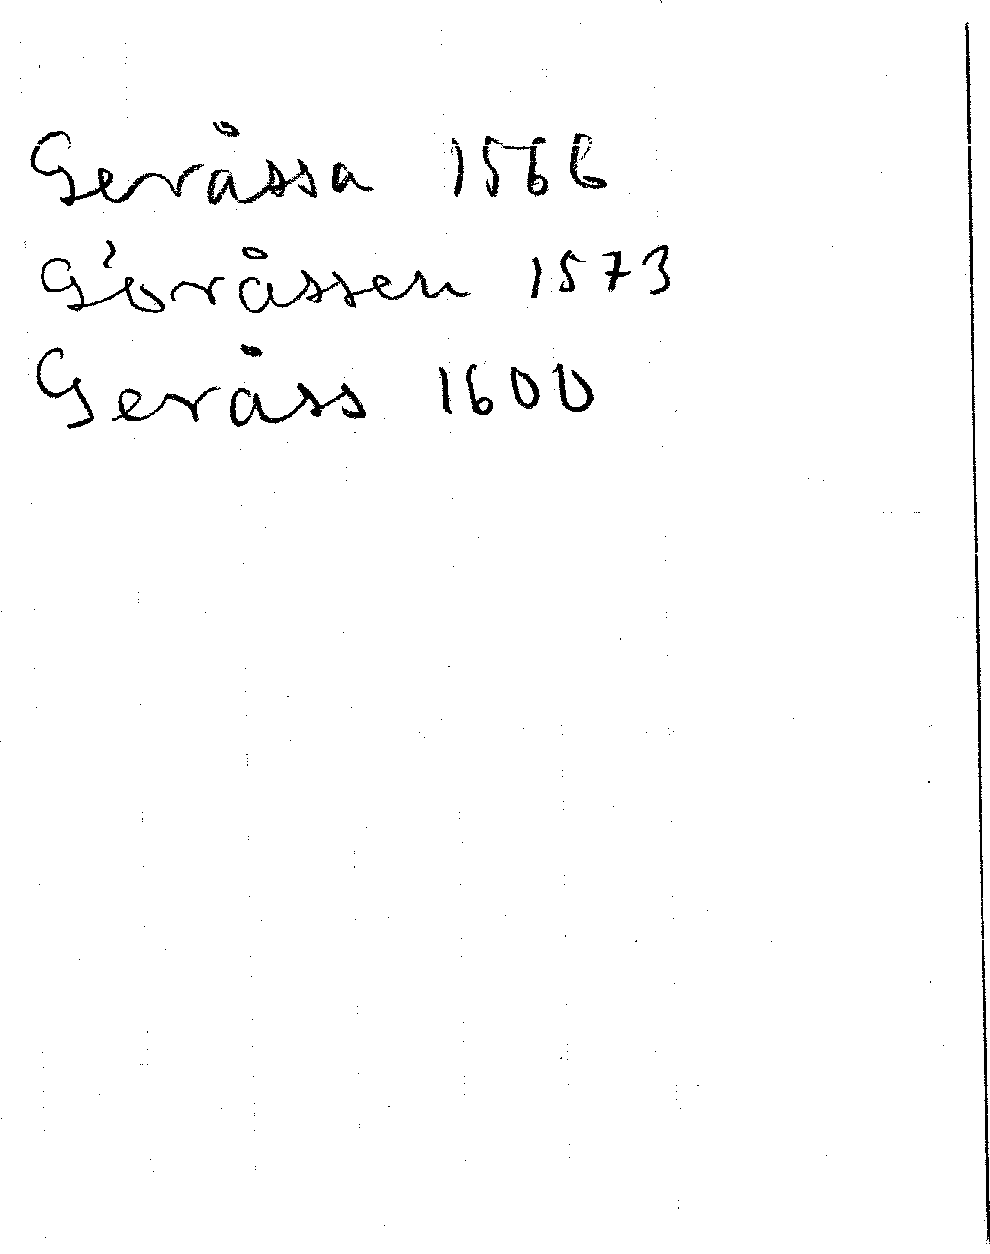 Geråssa 1566
Göråssen 1573
Geråss 1600